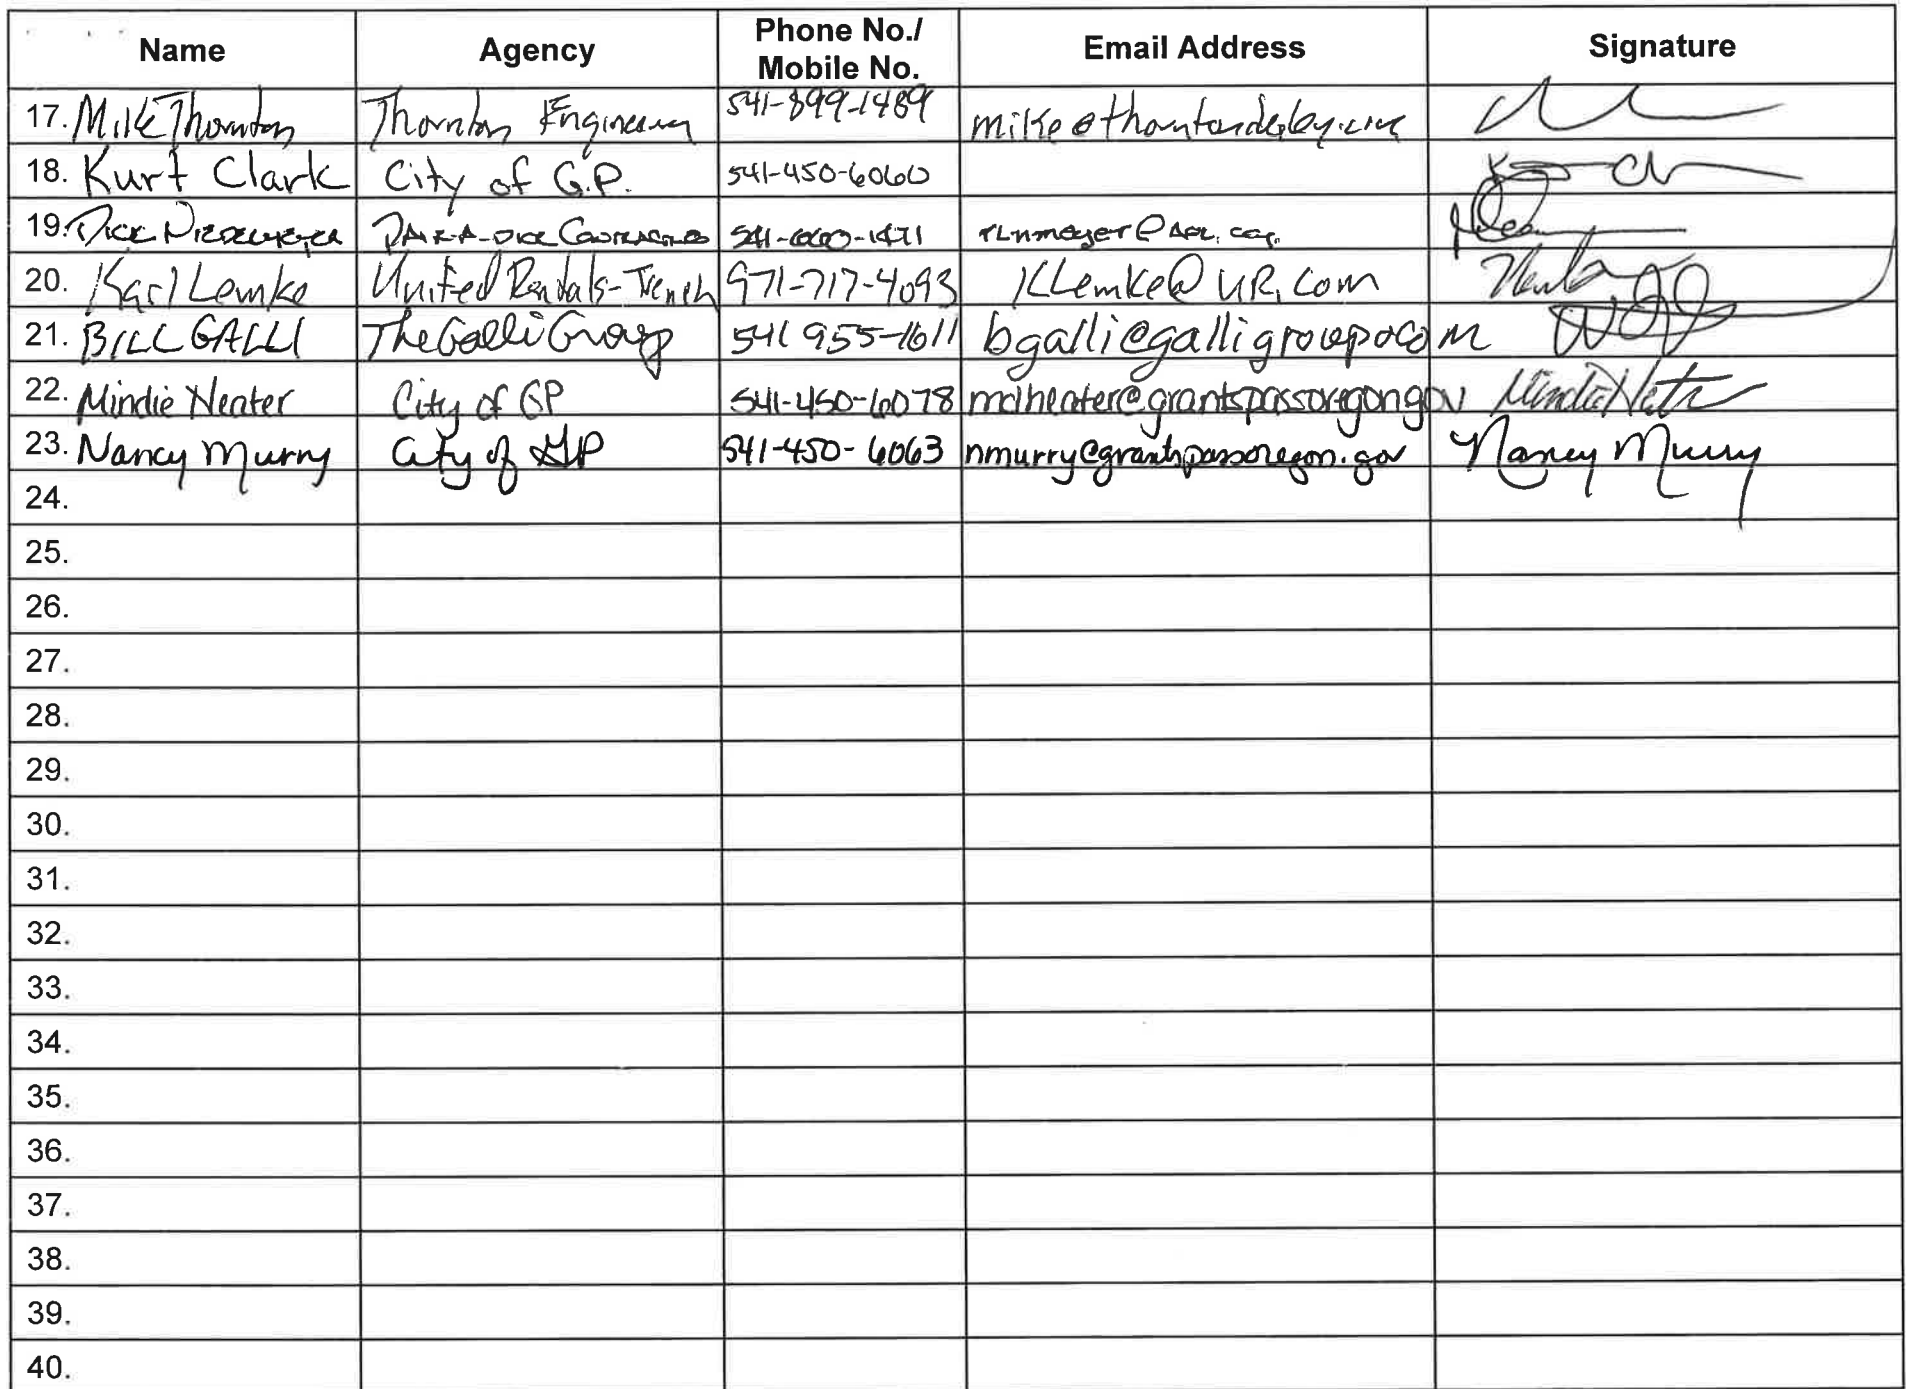 Name Agency Phone No./ Mobile No. Email Address Signature
17. Mike Thornton Thornton Engineering 541-899-1489
18. Kurt Clark City of G.P. 541-450-6060
19. Dick
20. Karl Lemke United Rentals-Trench 971-717-4093 KLemke@UR.com
21. BILL GALLI The Galli Group 541 955-1611 bgalli@galligroup.com
22. Mindie Heater City of GP 541-450-6078 mdheater@grantspassoregon.gov
23. Nancy Murry City of GP 541-450-6063 nmurry@grantspassoregon.gov Nancy Murry
24.
25.
26.
27.
28.
29.
30.
31.
32.
33.
34.
35.
36.
37.
38.
39.
40.